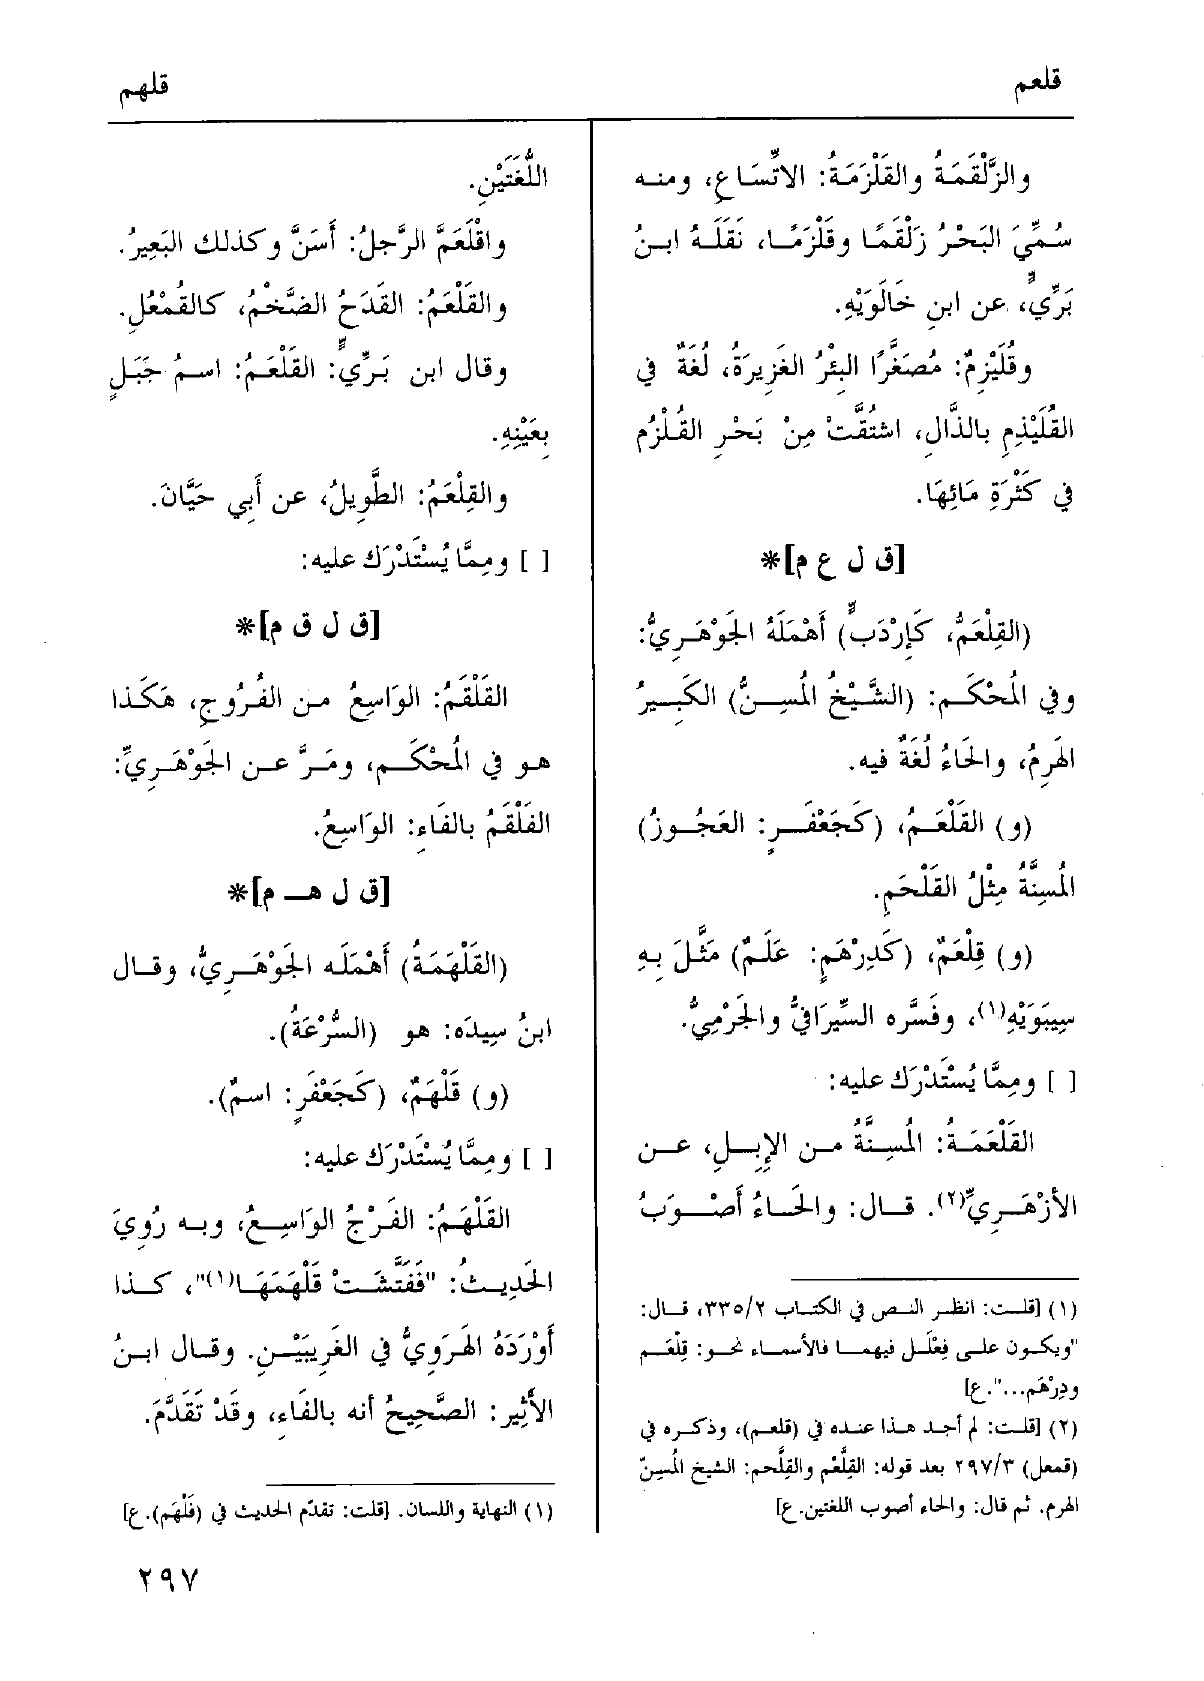 قلعم
قلهم
والزَّلْقَمَةُ والقَلْزَمَةُ: الاتِّسَاع، ومنه
سُمِّيَ البَحْرُ زَلْقَمًا وقَلْزَمًا، نَقَلَهُ ابنُ
بَرِّيٍّ، عن ابنِ خَالَوَيْهِ.
وقُلَيْزِمٌ: مُصَغَّرًا البِئْرُ الغَزِيرَةُ، لُغَةٌ في
القُلَيْذِمِ بالذَّالِ، اشتُقَّتْ مِنْ بَحْرِ القُلْزُمِ
في كَثْرَةِ مَائِهَا.
[ق ل ع م]*
(القِلْعَمُّ، كَإِرْدَبٍّ) أَهْمَلَهُ الجَوْهَرِيُّ:
وفي المُحْكَم: (الشَّيْخُ المُسِنُّ) الكَبِيرُ
الهَرِمُ، والحَاءُ لُغَةٌ فيه.
(و) القَلْعَمُ، (كَجَعْفَرٍ: العَجُوزُ)
المُسِنَّةُ مِثْلُ القَلْحَمِ.
(و) قِلْعَمٌ، (كَدِرْهَمٍ: عَلَمٌ) مَثَّلَ بِهِ
سِيبَوَيْهِ(١)، وفَسَّره السِّيرَافيُّ والجَرْمِيُّ.
[ ] ومِمَّا يُسْتَدْرَك عليه:
القَلْعَمَةُ: المُسِنَّةُ من الإِبِلِ، عن
الأزْهَرِيِّ(٢). قال: والحَاءُ أصْوَبُ
(١) [قلت: انظر النص في الكتاب ٣٣٥/٢، قال:
"ويكون على فِعْلَل فيهما فالأسماء نحو: قِلْعَم
ودِرْهَم...".ع]
(٢) [قلت: لم أجد هذا عنده في (قلعم)، وذكره في
(قمعل) ٢٩٧/٣ بعد قوله: القِلَّعْم والقِلَّحم: الشيخ المُسِنّ
الهرم. ثم قال: والحاء أصوب اللغتين.ع]
اللُّغَتَيْنِ.
واقْلَعَمَّ الرَّجلُ: أَسَنَّ وكذلك البَعِيرُ.
والقَلْعَمُ: القَدَحُ الضَّخْمُ، كالقُمْعُلِ.
وقال ابن بَرِّيٍّ: القَلْعَمُ: اسمُ جَبَلٍ
بِعَيْنِهِ.
والقِلْعَمُ: الطَّوِيلُ، عن أَبِي حَيَّانَ.
[ ] ومِمَّا يُسْتَدْرَك عليه:
[ق ل ق م]*
القَلْقَمُ: الوَاسِعُ من الفُرُوجِ، هَكَذا
هو في المُحْكَم، ومَرَّ عن الجَوْهَرِيِّ:
الفَلْقَمُ بالفَاءِ: الوَاسِعُ.
[ق ل هـ م]*
(القَلْهَمَةُ) أَهْمَله الجَوْهَرِيُّ، وقال
ابنُ سِيدَه: هو (السُّرْعَةُ).
(و) قَلْهَمٌ، (كَجَعْفَرٍ: اسمٌ).
[ ] ومِمَّا يُسْتَدْرَك عليه:
القَلْهَمُ: الفَرْجُ الوَاسِعُ، وبه رُوِيَ
الحَدِيثُ: "فَفَتَّشَتْ قَلْهَمَهَا(١)"، كذا
أوْرَدَهُ الهَرَوِيُّ في الغَرِيبَيْن. وقال ابنُ
الأَثِير: الصَّحِيحُ أنه بالفَاءِ، وقَدْ تَقَدَّمَ.
(١) النهاية واللسان. [قلت: تقدّم الحديث في (فَلْهَم).ع]
٢٩٧